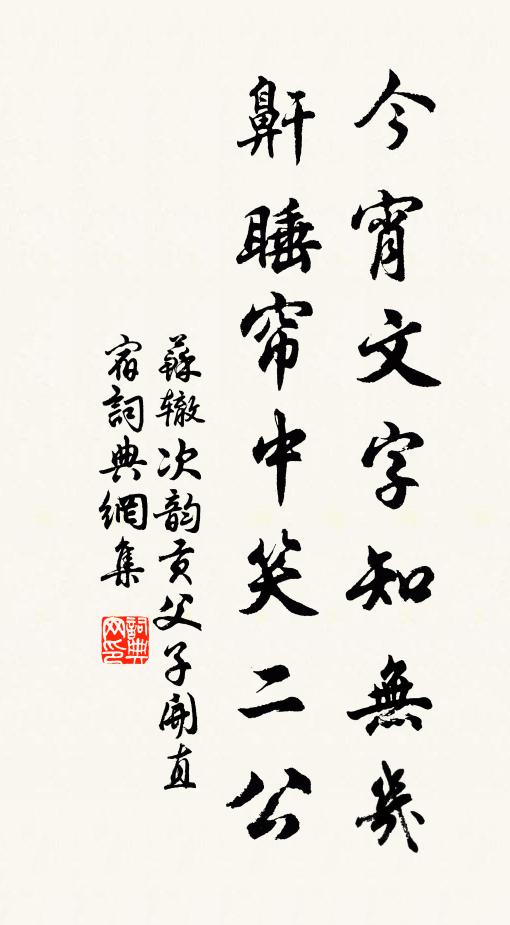 今宵文字知無幾
鼾睡帘中笑二公
蘇辙次韵贡父子開直
宿詞典網集
詞典
网印